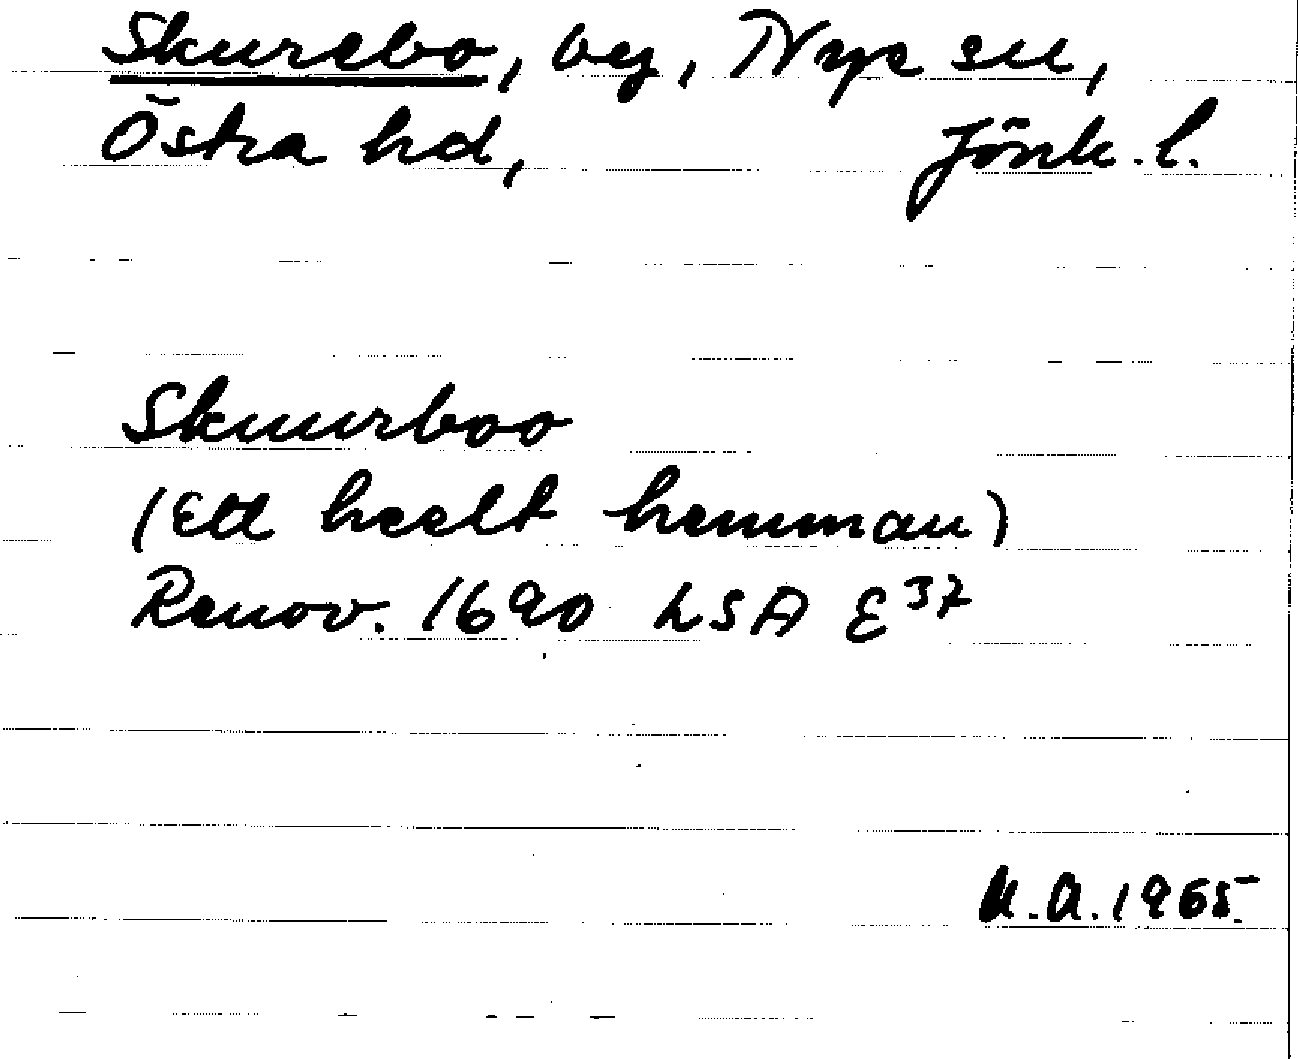 Skurebo, by, Nye sn,
Östra hd, Jönk. l.
Skuurboo
(Ett heelt hemman)
Renov. 1690 LSA E 37
U.A. 1965